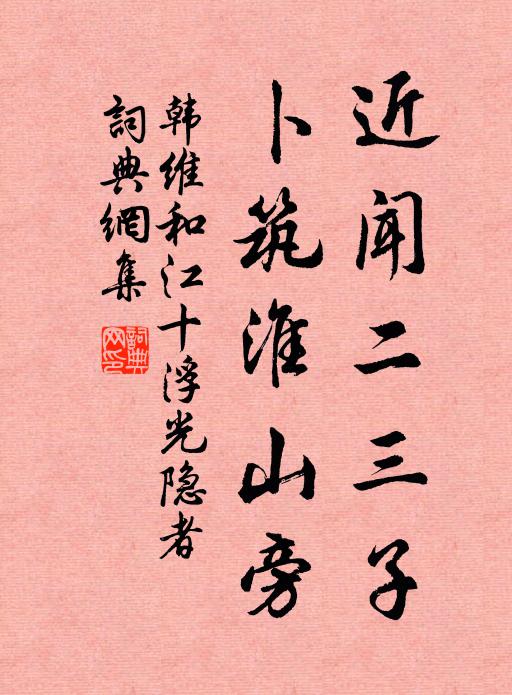 近闻二三子
卜筑淮山旁
韩维和江十浮光隐者
詞典網集
詞典网印